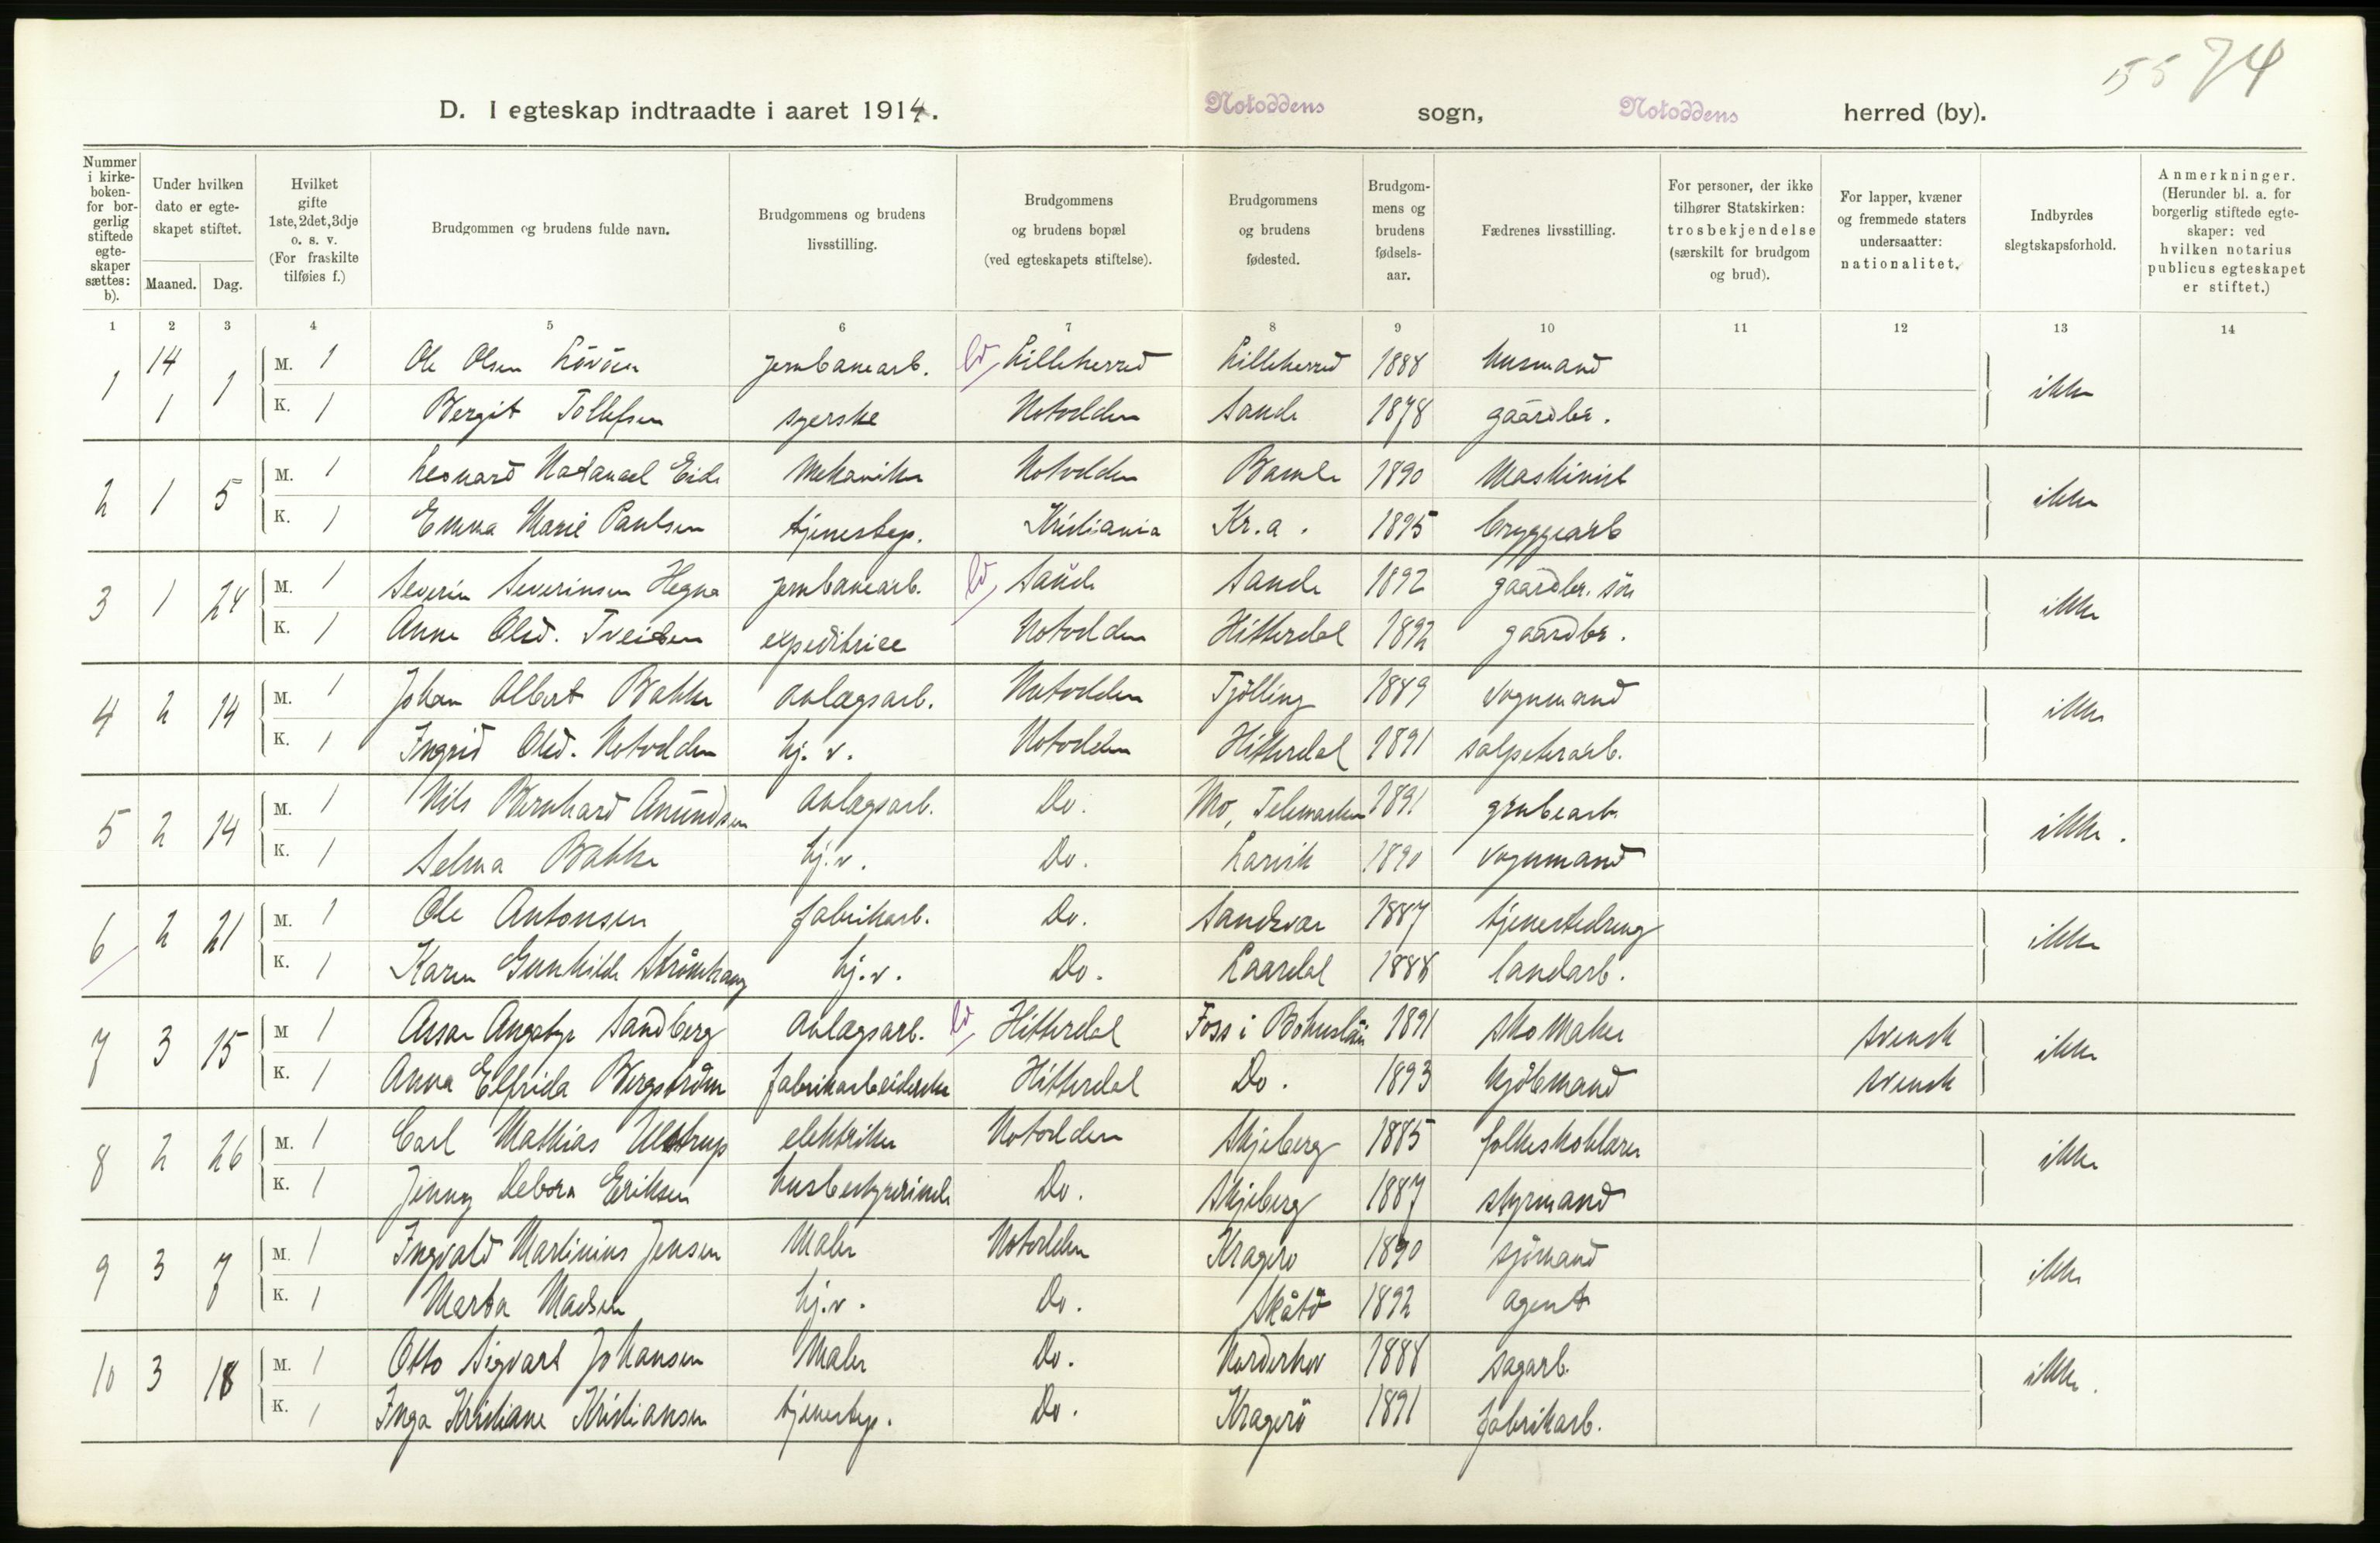 55 74
D. I egteskap indtraadte i aaret 1914. Notoddens sogn, Notoddens herred (by).
Nummer i kirkeboken- for borgerlig stiftede egteskaper sættes: b). Under hvilken dato er egteskapet stiftet. Maaned. Dag. Hvilket gifte 1ste, 2det, 3dje o. s. v. (For fraskilte tilføies f.) Brudgommen og brudens fulde navn. Brudgommens og brudens livsstilling. Brudgommens og brudens bopæl (ved egteskapets stiftelse). Brudgommens og brudens fødested. Brudgommens og brudens fødselsaar. Fædrenes livsstilling. For personer, der ikke tilhører Statskirken: trosbekjendelse (særskilt for brudgom og brud). For lapper, kvæner og fremmede staters undersaatter: nationalitet. Indbyrdes slegtskapsforhold. Anmerkninger. (Herunder bl. a. for borgerlig stiftede egteskaper: ved hvilken notarius publicus egteskapet er stiftet.)
1 2 3 4 5 6 7 8 9 10 11 12 13 14
1 14 1 1 M. 1 Ole Olsen jernbanearb. Lilleherred Lilleherred 1888 husmand ikke
K. 1 Bergit Tollefsen syerske Notodden Sande 1878 gaardbr.
2 1 5 M. 1 Leonard Natanael Eide mekaniker Notodden Bamle 1890 Maskinist ikke
K. 1 Emma Marie Paulsen tjenestep. Kristiania Kr.a. 1895 bryggearb
3 1 24 M. 1 Severin Severinsen Hegna jernbanearb. Saude Saude 1892 gaardbr. sön ikke
K. 1 Anne Olsd. Tveiten expeditrice Notodden Hitterdal 1892 gaardbr.
4 2 14 M. 1 Johan Albert Bakke anlægsarb. Notodden Tjölling 1889 vognmand ikke
K. 1 Ingrid Olsd. Notodden hj. v. Notodden Hitterdal 1891 salpeterarb.
5 2 14 M. 1 Nils Bernhard Amundsen anlægsarb. Do. Mo, Telemarken 1891 grubearb. ikke.
K. 1 Selma Bakke hj. v. Do. Larvik 1890 vognmand
6 2 21 M. 1 Ole Antonsen fabrikarb. Do. Sandsvær 1887 tjenestedreng ikke
K. 1 Karen Gunhilde Strömhaug hj. v. Do. Laardal 1888 landarb.
7 3 15 M 1 Angatyr Sandberg anlægsarb. Hitterdal Foss i Bohuslän 1891 skomaker svensk ikke
K. 1 Anna Elfrida Bergström fabrikarbeiderske Hitterdal Do. 1893 kjöbmand svensk
8 2 26 M. 1 Carl Mathias Ulstrup elektriker Notodden Skjeberg 1885 folkeskolelærer ikke
K. 1 Jenny Debora Eriksen husbestyrerinde Do. Skjeberg 1887 styrmand
9 3 7 M. 1 Ingvald Martinius Jensen Maler Notodden Kragerö 1890 sjömand ikke
K. 1 Marta Madsen hj. v. Do. Skåtö 1892 agent
10 3 18 M. 1 Otto Sigvart Johansen Maler Do. Norderhov 1888 sagarb. ikke.
K. 1 Inga Kristiane Kristiansen tjenestep. Do. Kragerö 1891 fabrikarb.